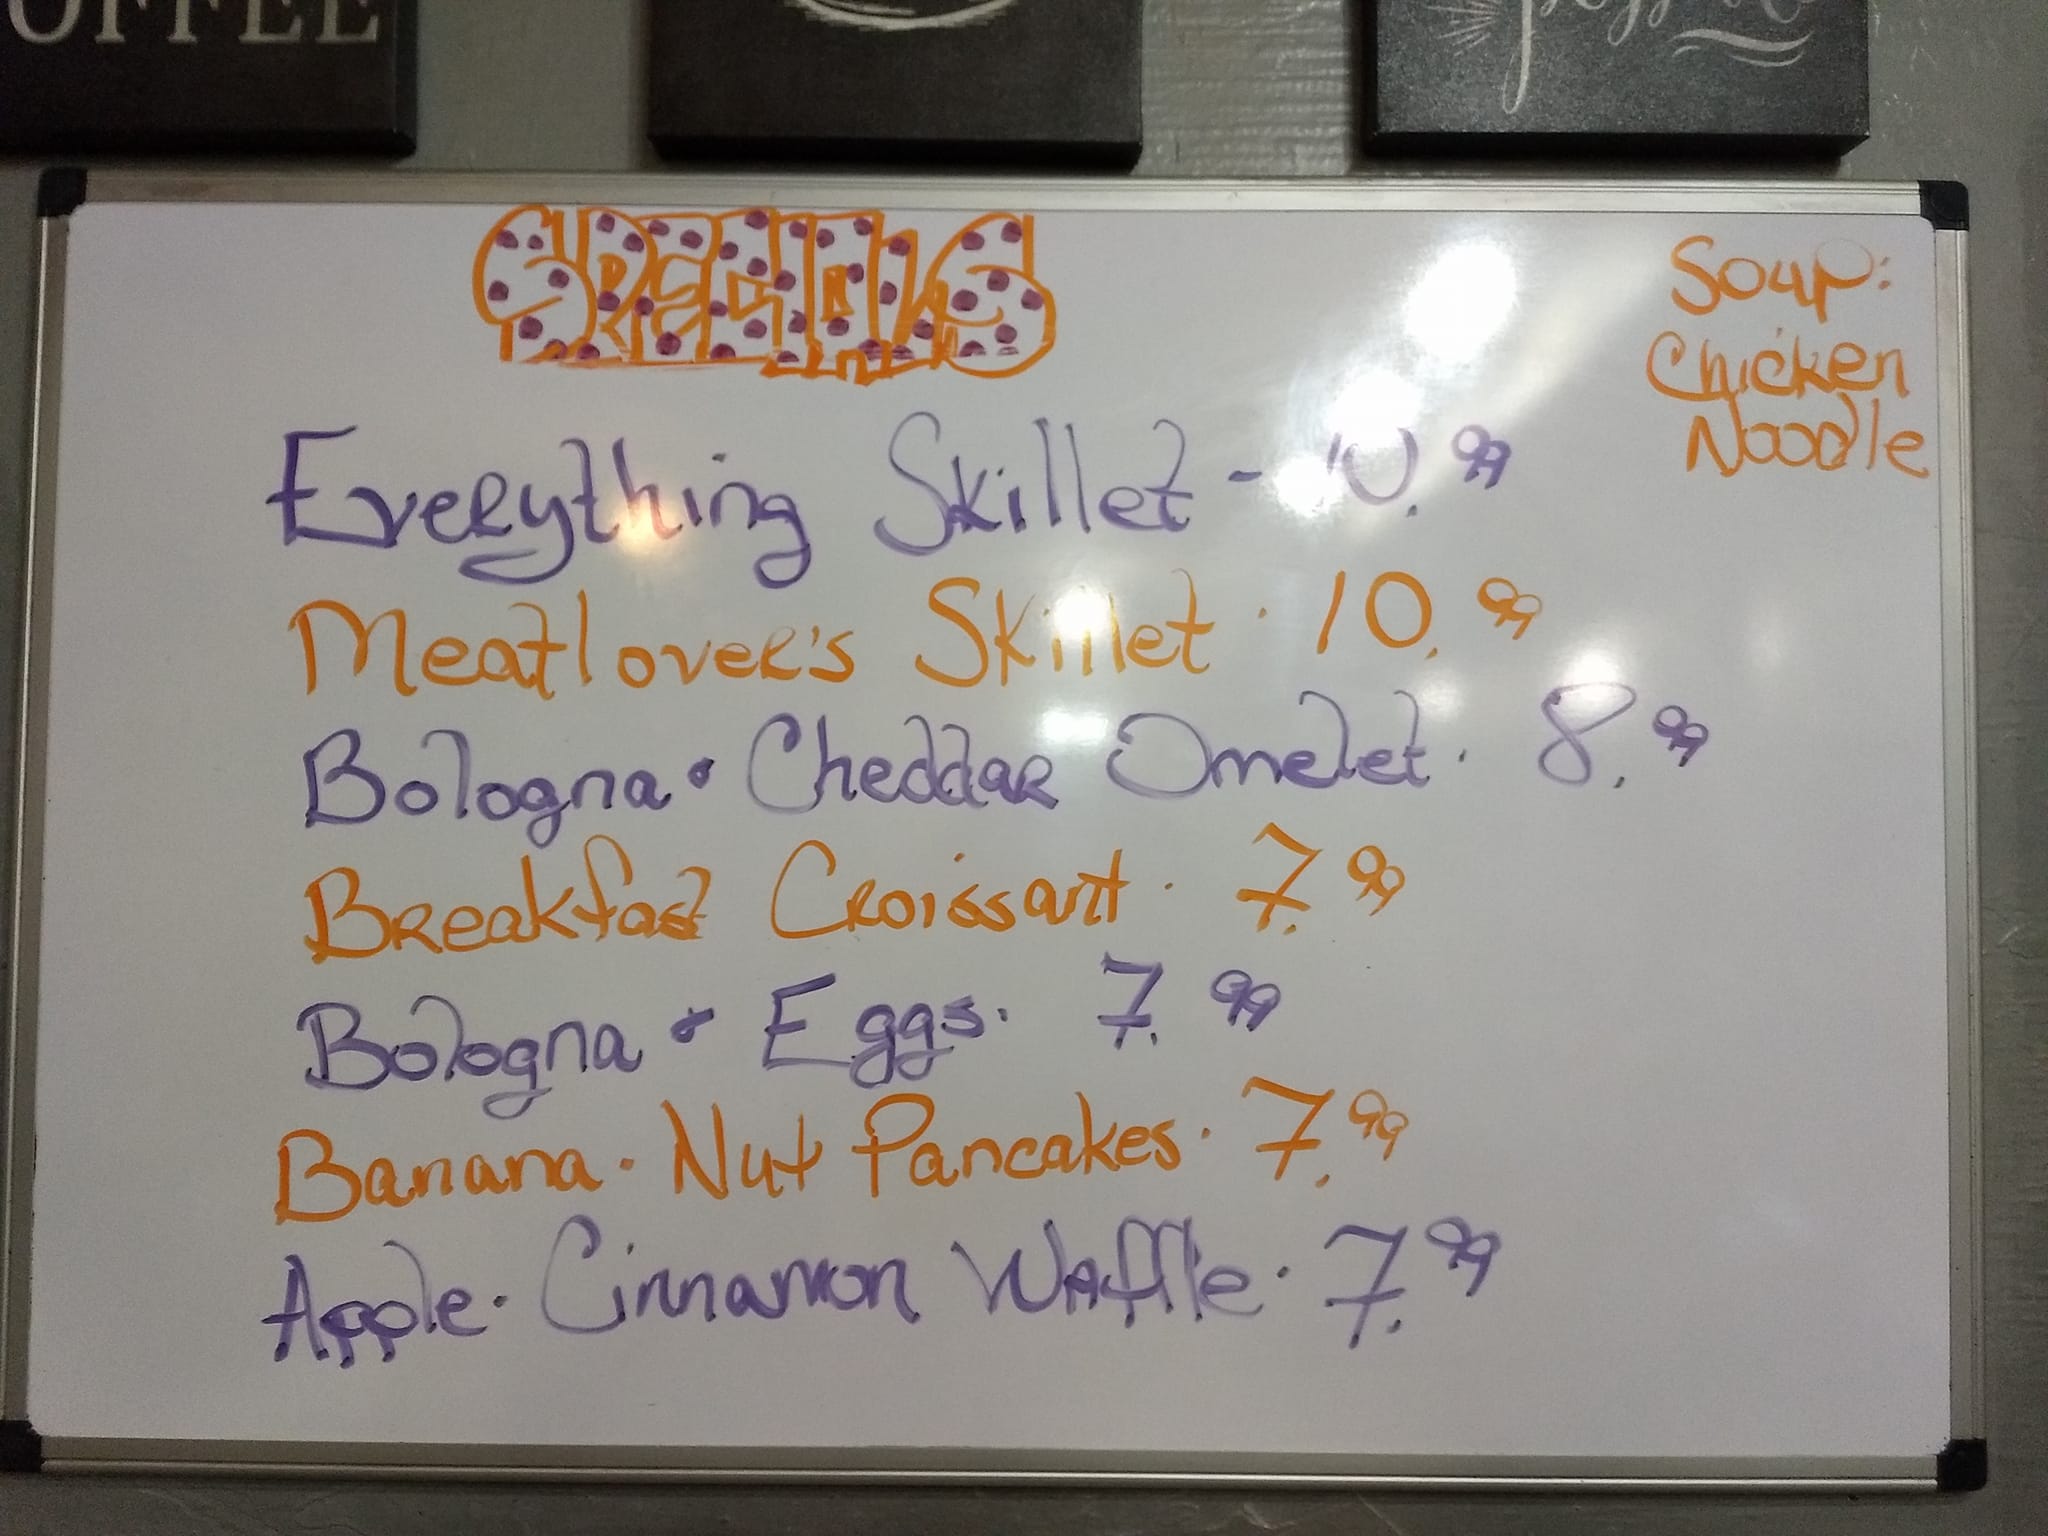 OFFEE
SPECIALS
Soup:
Chicken
Noodle
Everything Skillet - 10.99
Meatlover's Skillet · 10.99
Bologna & Cheddar Omelet · 8.99
Breakfast Croissant · 7.99
Bologna & Eggs · 7.99
Banana · Nut Pancakes · 7.99
Apple · Cinnamon Waffle · 7.99